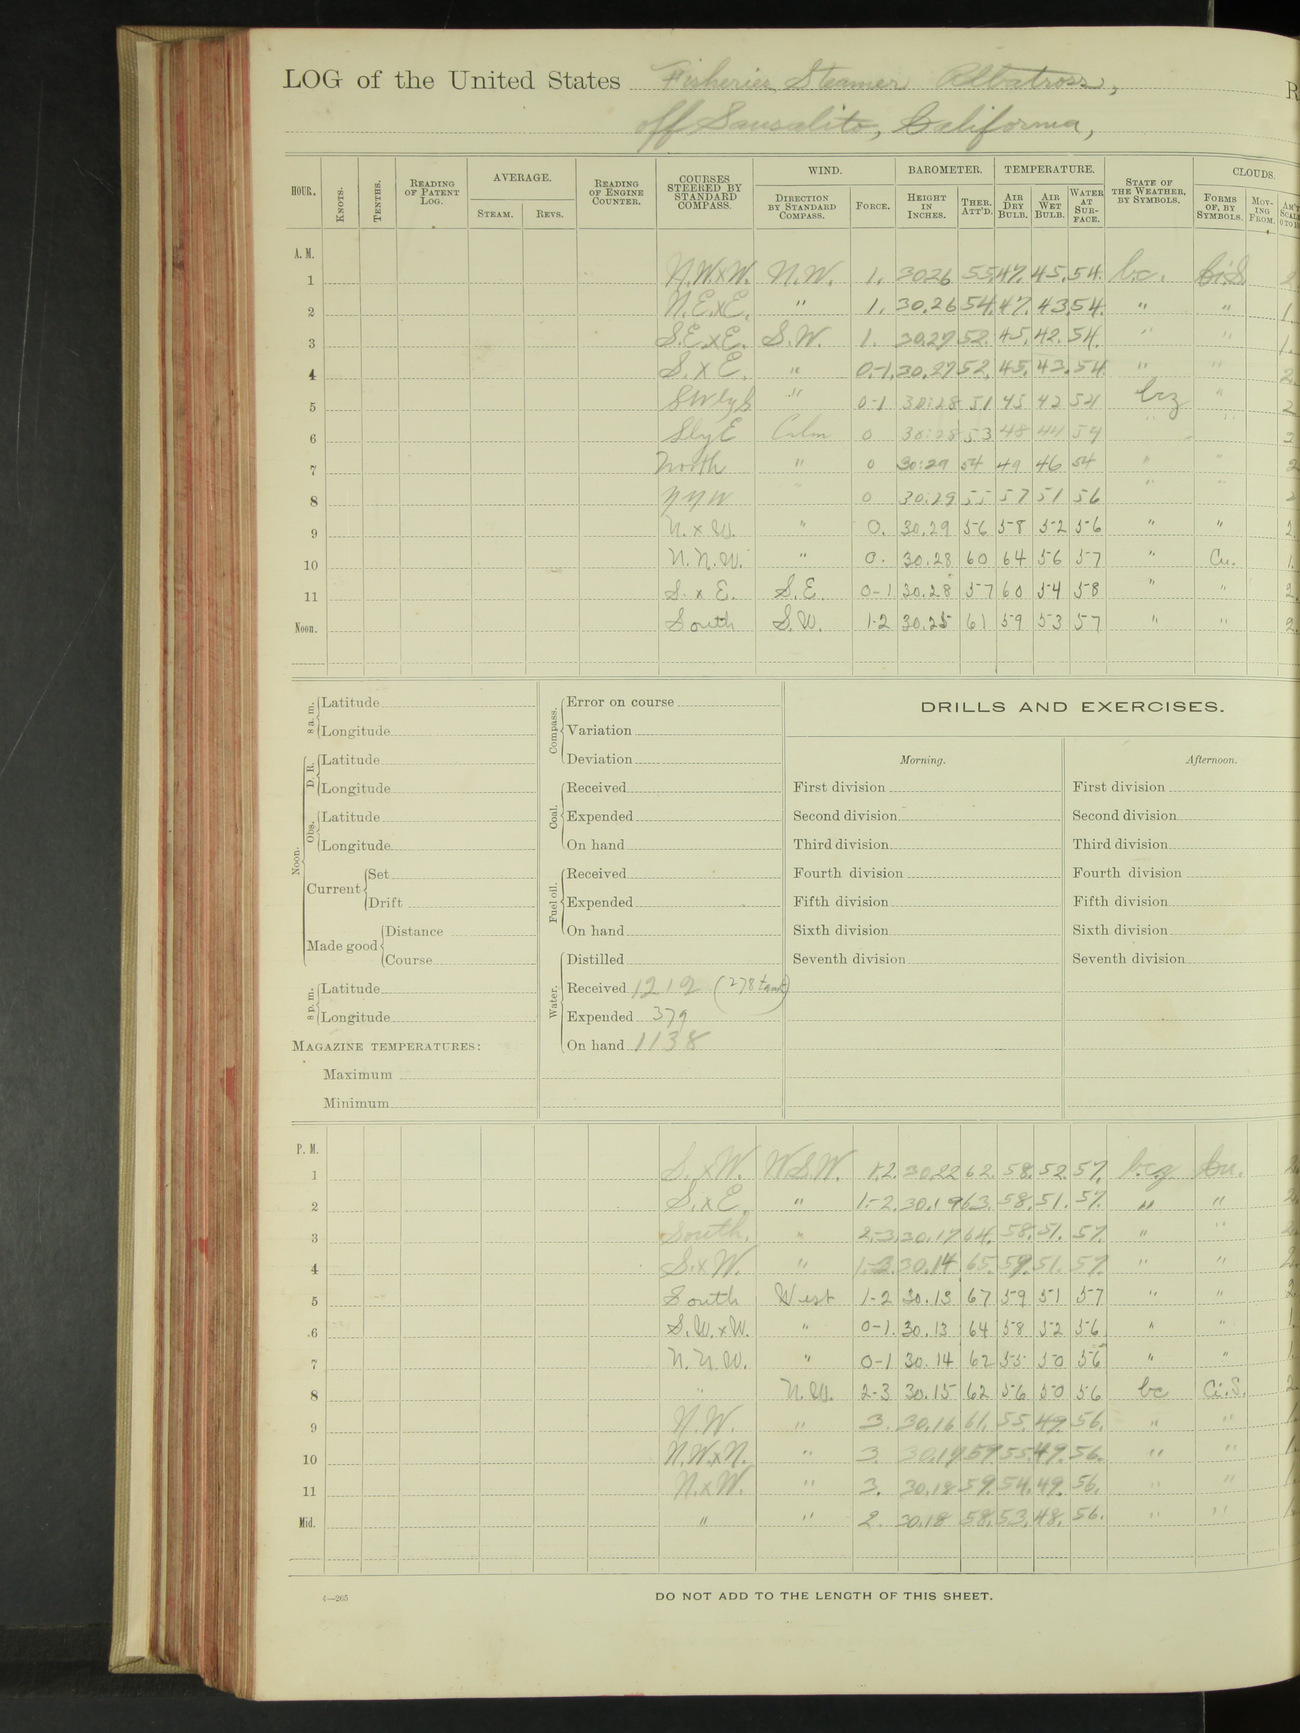 LOG of the United States Fisheries Steamer Albatross,
R
off Sausalito, California,
HOUR. KNOTS. TENTHS. READING OF PATENT LOG. AVERAGE. STEAM. REVS. READING OF ENGINE COUNTER. COURSES STEERED BY STANDARD COMPASS. WIND. DIRECTION BY STANDARD COMPASS. FORCE. BAROMETER. HEIGHT IN INCHES. THER. ATT'D. TEMPERATURE. AIR DRY BULB. AIR WET BULB. WATER AT SURFACE. STATE OF THE WEATHER, BY SYMBOLS. CLOUDS. FORMS OF, BY SYMBOLS. MOVING FROM.
A. M.
1 N.W.xW. N.W. 1. 30.26 55. 47. 45. 54. b.c. Ci.S. 2
2 N.E.xE. " 1. 30.26 54. 47. 43. 54. " " 1.
3 S.E.xE. S.W. 1. 30.27 52. 45. 42. 54. " " 1.
4 S.xE. " 0-1. 30.27 52. 45. 43. 54 " " 2.
5 " 0-1 30:28 51 45 42 54 bcz " 2
6 Sly E Calm 0 30:28 53 48 44 54 " " 3
7 North " 0 30:29 54 49 46 54 " " 2
8 NNW " 0 30:29 55 57 51 56 " " 2
9 N. x W. " 0. 30.29 56 58 52 56 " " 2.
10 N.N.W. " 0. 30.28 60 64 56 57 " Cu. 1.
11 S. x E. S.E. 0-1 30.28 57 60 54 58 " " 2.
Noon. South S.W. 1-2 30.25 61 59 53 57 " " 2.
8 a. m. Latitude
Longitude
Noon. D. R. Latitude
Longitude
Obs. Latitude
Longitude
Current Set
Drift
Made good Distance
Course
8 p. m. Latitude
Longitude
MAGAZINE TEMPERATURES:
Maximum
Minimum
Compass. Error on course
Variation
Deviation
Coal. Received
Expended
On hand
Fuel oil. Received
Expended
On hand
Water. Distilled
Received 1219 (278 tank)
Expended 379
On hand 1138
DRILLS AND EXERCISES.
Morning. Afternoon.
First division First division
Second division Second division
Third division Third division
Fourth division Fourth division
Fifth division Fifth division
Sixth division Sixth division
Seventh division Seventh division
P. M.
1 S.xW. W.S.W. 1-2. 30.22 62. 58. 52. 57. b.c.z. Cu. 2.
2 S.xE. " 1-2. 30.19 63. 58. 51. 57. " " 2.
3 South. " 2-3. 30.17 64. 58. 51. 57. " " 2.
4 S.xW. " 1-2. 30.14 65. 59. 51. 57. " " 2.
5 South West 1-2 30.13 67 59 51 57 " " 2
6 S.W.xW. " 0-1. 30.13 64 58 52 56 " " 1.
7 N.N.W. " 0-1 30.14 62 55 50 56 " " 1.
8 " N.W. 2-3 30.15 62 56 50 56 bc Ci.S. 2
9 N.W. " 3. 30.16 61. 55. 49. 56. " " 1.
10 N.W.xN. " 3. 30.17 59 55. 49. 56. " " 1.
11 N.xW. " 3. 30.18 59. 54. 49. 56. " " 1.
Mid. " " 2. 30.18 58. 53. 48. 56. " " 1.
4—265
DO NOT ADD TO THE LENGTH OF THIS SHEET.